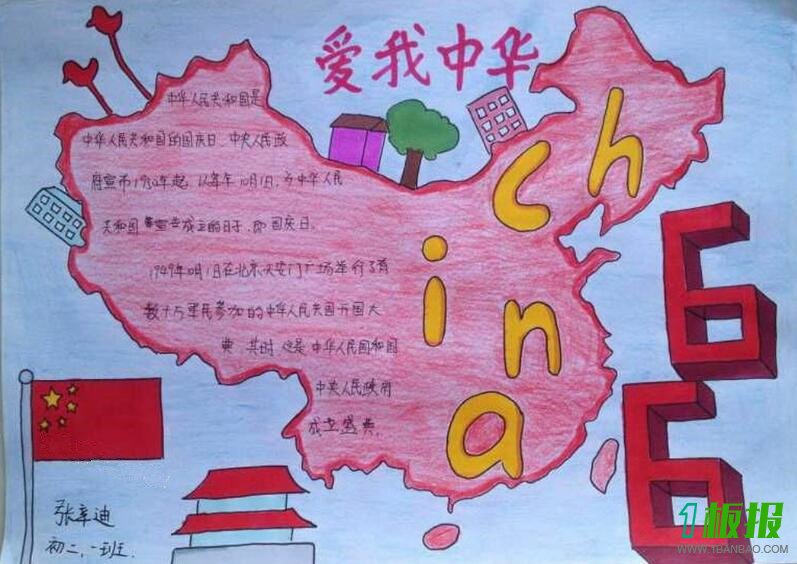 爱我中华
中华人民共和国是
中华人民共和国的国庆日.中央人民政
府宣布1950年起,以每年10月1日,为中华人民
共和国 宣告成立的日子,即国庆日。
1949年10月1日在北京天安门广场举行了有
数十万军民参加的中华人民共国开国大
典 其时 这是中华人民国和国
中央人民政府
成立盛典.
china
66
张辛迪
初二,一班.
1板报
WWW.1BANBAO.COM